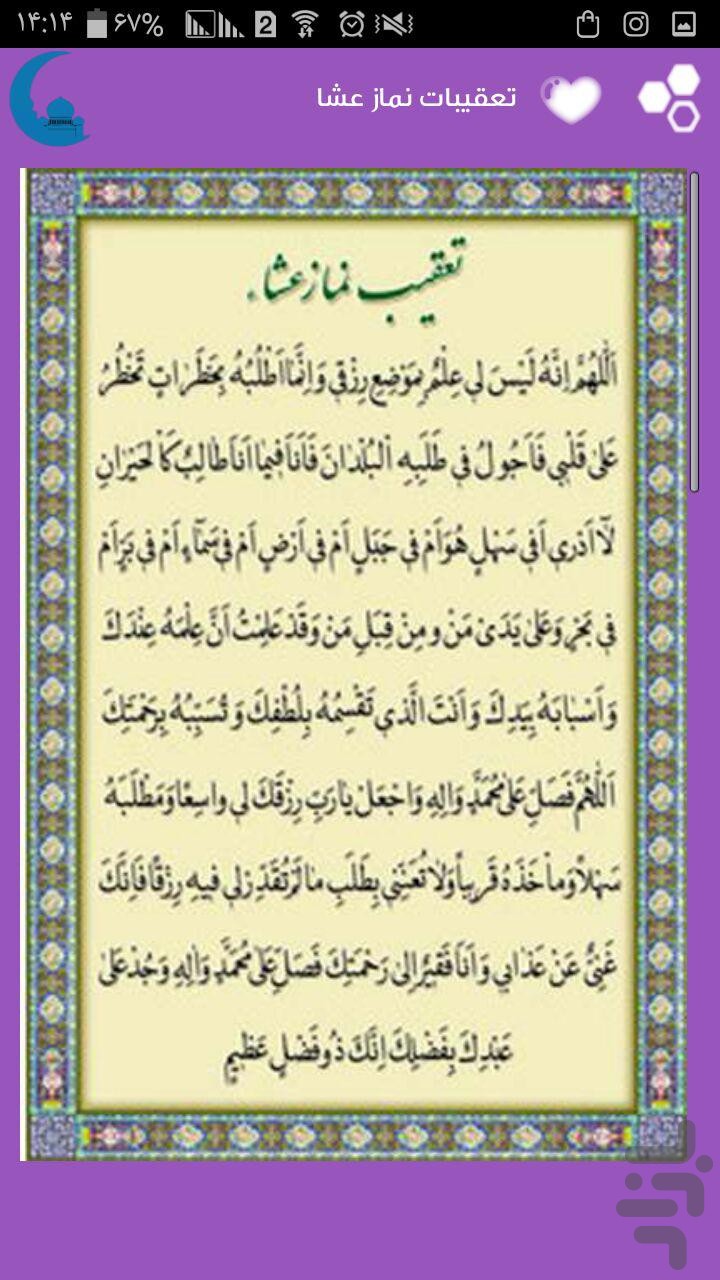 ۱۴:۱۴ ۶۷% 2
تعقیبات نماز عشا
تعقیب نماز عشاء
اَللّٰهُمَّ اِنَّهُ لَیْسَ لی عِلْمٌ بِمَوْضِعِ رِزْقی وَ اِنَّمٰا اَطْلُبُهُ بِخَطَرٰاتٍ تَخْطُرُ
عَلیٰ قَلْبی فَاَجُولُ فی طَلَبِهِ الْبُلْدٰانَ فَاَنَا فیمٰا اَنَا طٰالِبٌ کَالْحَیْرٰانِ
لٰا اَدْری اَفی سَهْلٍ هُوَ اَمْ فی جَبَلٍ اَمْ فی اَرْضٍ اَمْ فی سَمٰآءٍ اَمْ فی بَرٍّ اَمْ
فی بَحْرٍ وَ عَلیٰ یَدَیْ مَنْ وَ مِنْ قِبَلِ مَنْ وَ قَدْ عَلِمْتُ اَنَّ عِلْمَهُ عِنْدَکَ
وَ اَسْبٰابَهُ بِیَدِکَ وَ اَنْتَ الَّذی تَقْسِمُهُ بِلُطْفِکَ وَ تُسَبِّبُهُ بِرَحْمَتِکَ
اَللّٰهُمَّ فَصَلِّ عَلیٰ مُحَمَّدٍ وَ اٰلِهِ وَ اجْعَلْ یٰا رَبِّ رِزْقَکَ لی وٰاسِعًا وَ مَطْلَبَهُ
سَهْلاً وَ مَأْخَذَهُ قَریباً وَ لٰا تُعَنِّنی بِطَلَبِ مٰا لَمْ تُقَدِّرْ لی فیهِ رِزْقًا فَاِنَّکَ
غَنِیٌّ عَنْ عَذٰابی وَ اَنَا فَقیرٌ اِلیٰ رَحْمَتِکَ فَصَلِّ عَلیٰ مُحَمَّدٍ وَ اٰلِهِ وَ جُدْ عَلیٰ
عَبْدِکَ بِفَضْلِکَ اِنَّکَ ذُو فَضْلٍ عَظیمٍ